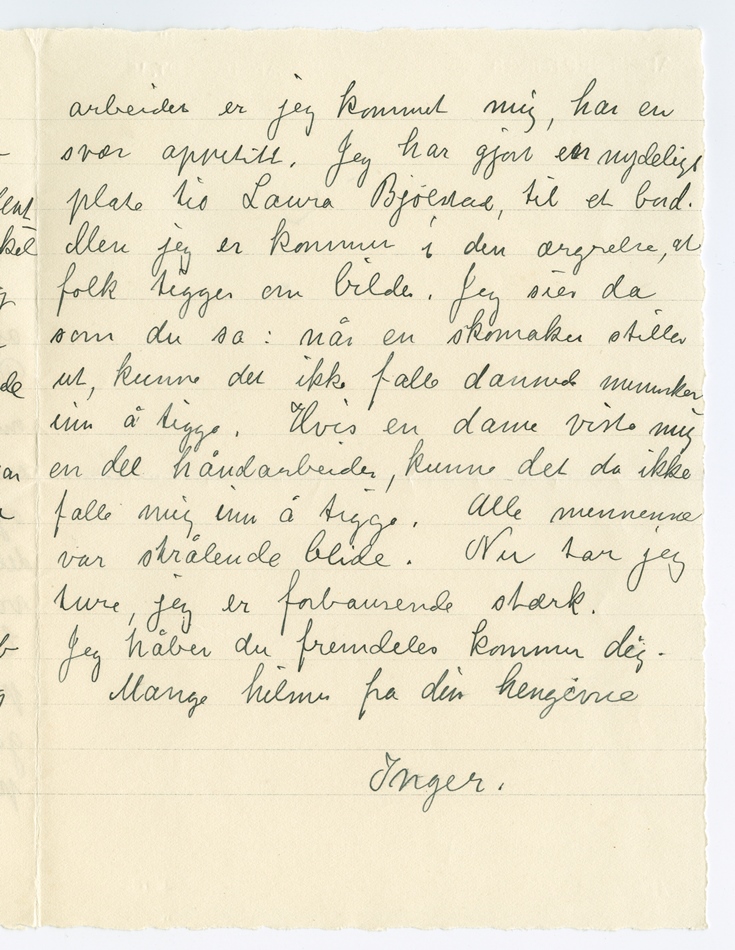 arbeidet er jeg kommet mig, har en
svær appetitt. Jeg har gjort en nydeligt
plate til Laura Bjølstad, til et bord.
Men jeg er kommer i den ærgrelse, at
folk tigger om bilder. Jeg sier da
som du sa: når en skomaker stiller
ut, kunne det ikke falle dannede mennesker
inn å tigge. Hvis en dame viste mig
en del håndarbeider, kunne det da ikke
falle mig inn å tigge. Alle mennene
var strålende blide. Nu tar jeg
ture, jeg er forbausende stærk.
Jeg håber du fremdeles kommer dig.
Mange hilsner fra din hengivne
Inger.